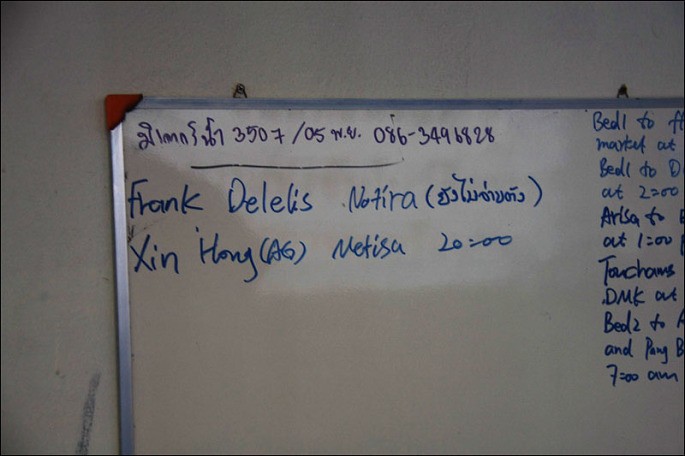 3507 / 05 พ.ย. 086-3496828
Frank Delelis Notira (ยังไม่จ่ายตัง)
Xin Hong (AG) Metisa 20:00
Bed1 to
market at
Bed1 to D
at 2:00
Arisa to
at 1:00
DMK at
Bed2 to
and Pong B
7:00 am